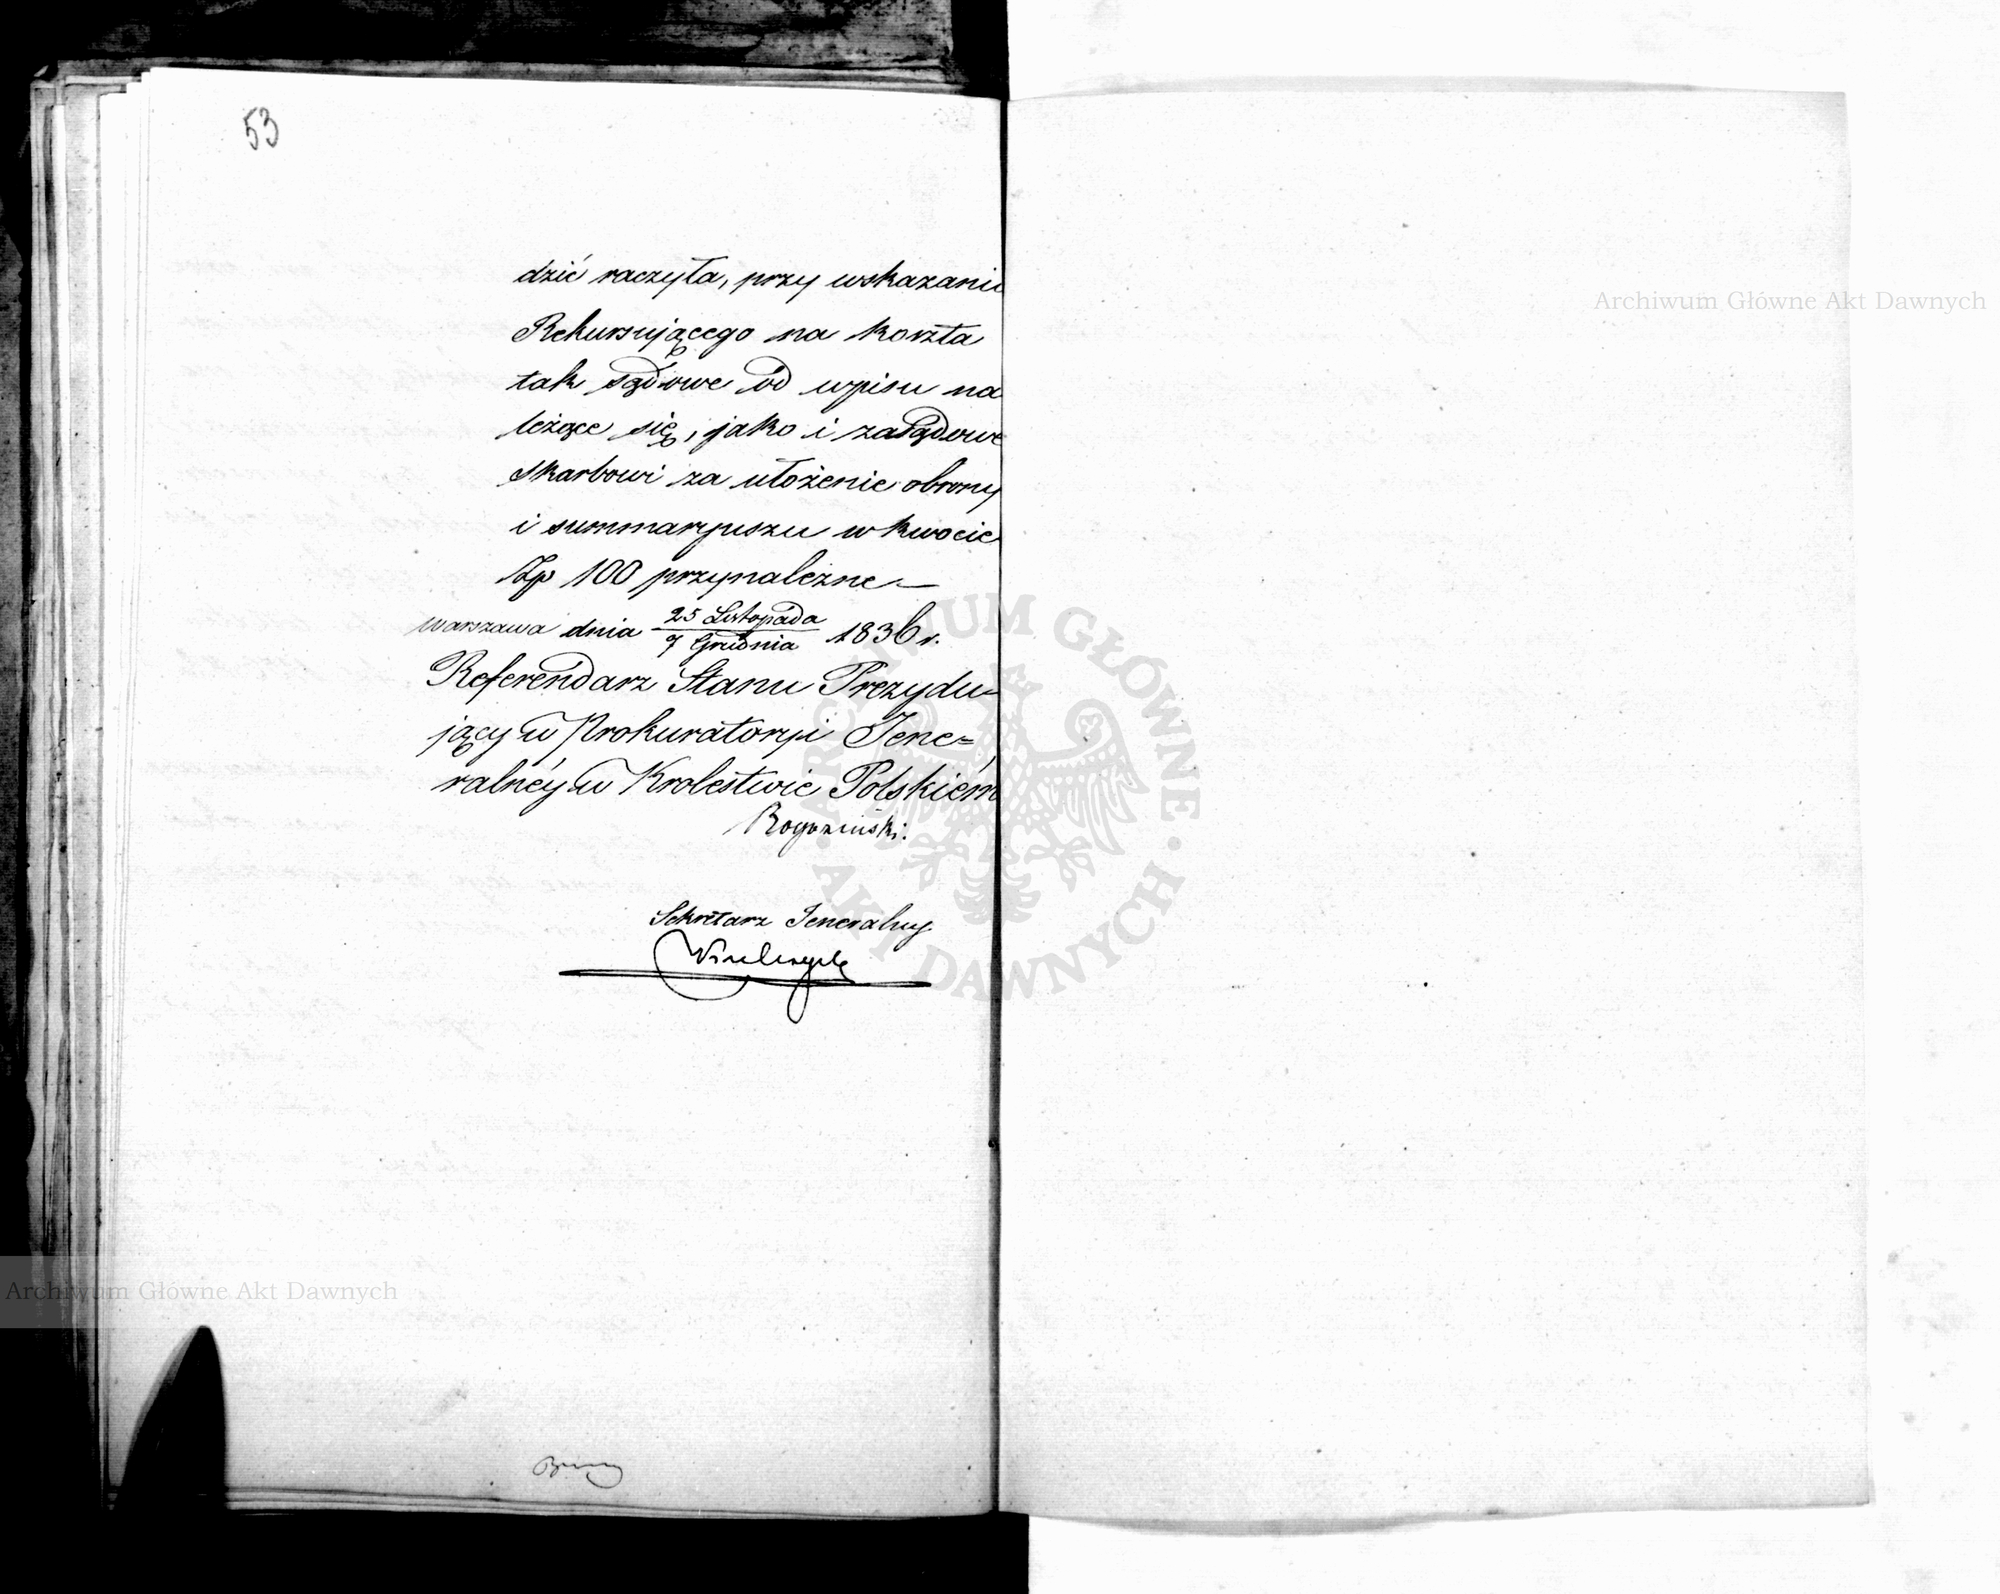 53
dzić raczyła, przy wskazaniu
Rekursującego na koszta
tak sądowe od wpisu na
leżące się, jako i zasądowe
skarbowi za ułożenie obrony
i summaryuszu w kwocie
Zp 100 przynależne —
Warszawa dnia 25 Listopada / 7 Grudnia 1836 r.
Referendarz Stanu Prezydu-
jący w Prokuratoryi Jene=
ralnéy w Krolestwie Polskiém
Rogoziński.
Sekretarz Jeneralny
Archiwum Główne Akt Dawnych
Archiwum Główne Akt Dawnych
ARCHIWUM GŁÓWNE AKT DAWNYCH